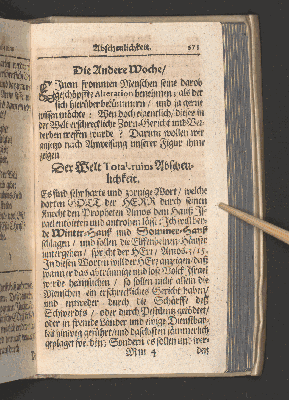 Abscheulichkeit. 671
Die Andere Woche/
Einem frommen Menschen seine darob
geschöpfft; Alteration benehmen; als der
sich hierüber bekümmern / und ja gerne
wissen möchte: Wen doch eigentlich / dieses in
der Welt erschreckliche Zorn-Gericht und Ver-
derben treffen würde? Darum wollen wir
anjetzo nach Anweisung unserer Figur ihme
zeigen
Der Welt Total-ruins Abscheu-
lichkeit.
Es sind sehr harte und zornige Wort / welche
dorten GOTT der HERR durch seinen
Knecht den Propheten Amos dem Hauß Is-
rael entbieten und androhen läst: Ich will bey-
de Winter-Hauß und Sommer-Hauß
schlagen / und sollen die Elffenbeinen Häuser
untergehen / spricht der HErr / Amos. 3/15.
In diesen Worten will der HErr anzeigen daß
wann er das abtrünnige und lose Volck Israel
werde heimsuchen / so sollen nicht allein die
Menschen ein erschreckliches Gericht haben /
und entweder durch die Schärffe deß
Schwerdts / oder durch Pestilentz getödtet /
oder in fremde Länder und ewige Dienstbar-
keit hinweg geführt / und daselbsten jämmerlich
geplaget werden; Sondern es sollen und wer-
Mm 4 den